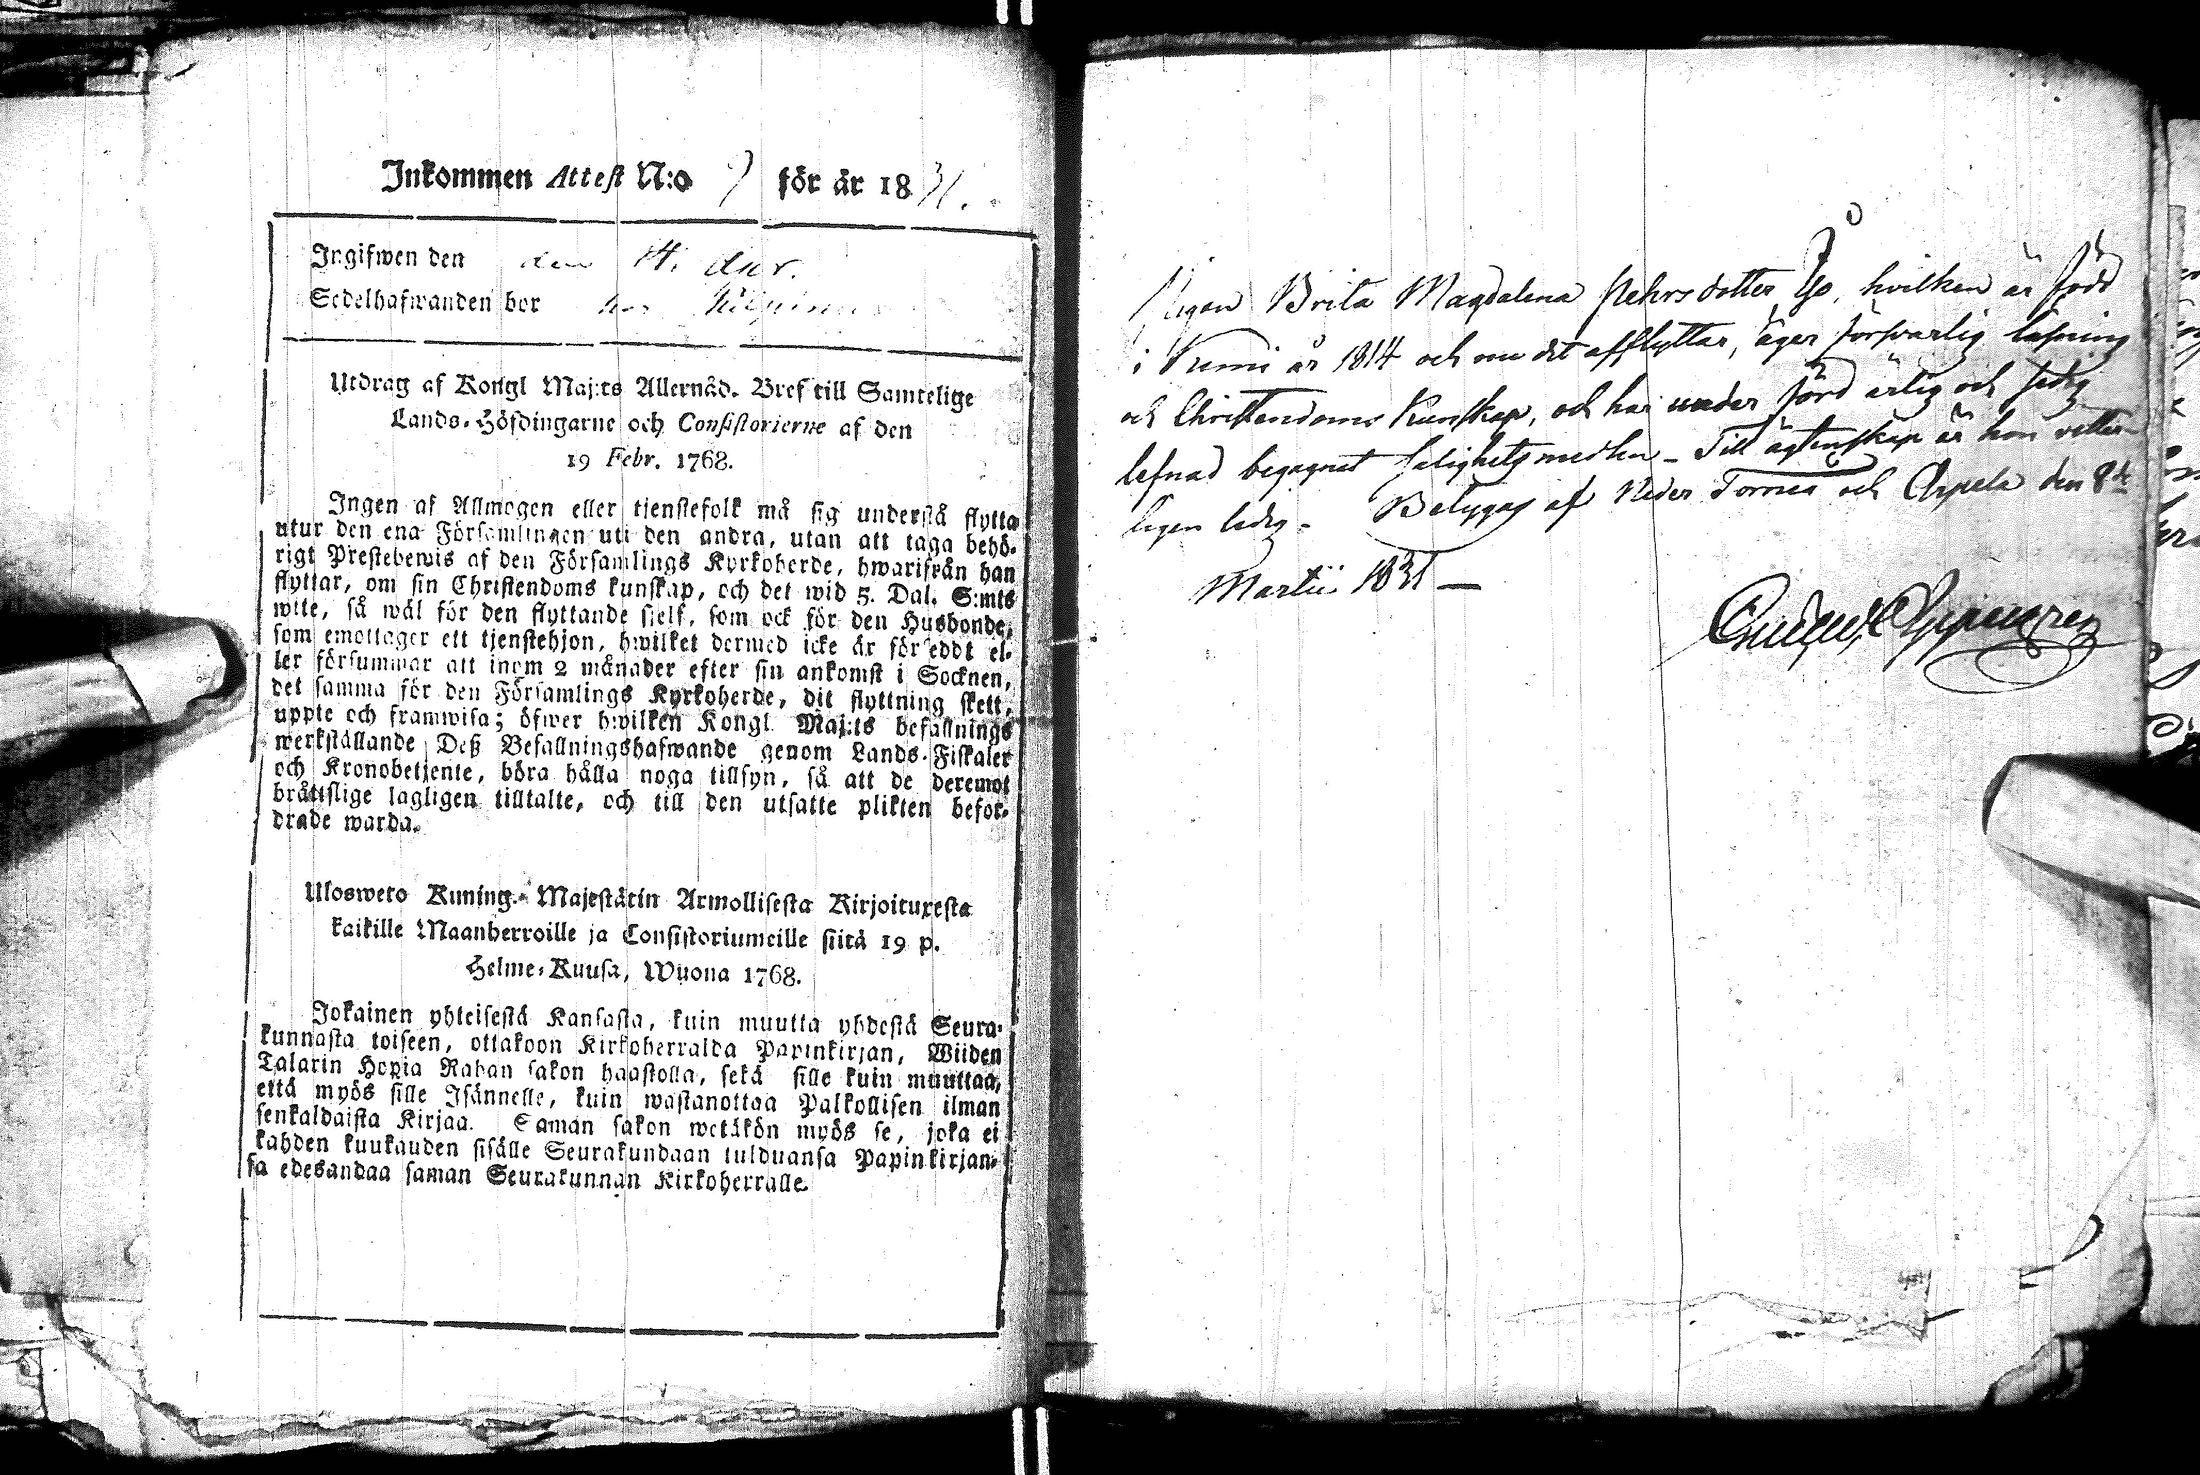 Inkommen Attest N:o 7 för år 1831.
Ingifwen den den 14 Apr.
Sedelhafwanden bor hos
Utdrag af Kongl Maj:ts Allernåd. Bref till Samtelige
Lands-Höfdingarne och Consistorierne af den
19 Febr. 1768.
Ingen af Allmogen eller tjenstefolk må sig understå flytta
utur den ena Församlingen uti den andra, utan att taga behö-
rigt Prestebewis af den Församlings Kyrkoherde, hwarifrån han
flyttar, om sin Christendoms kunskap, och det wid 5. Dal. S:mts
wite, så wäl för den flyttande sielf, som ock för den Husbonde,
som emottager ett tjenstehjon, hwilket dermed icke är förseddt el-
ler försummar att inom 2 månader efter sin ankomst i Socknen,
det samma för den Församlings Kyrkoherde, dit flyttning skett,
uppte och framwisa; öfwer hwilken Kongl Maj:ts befallnings
werkställande Deß Befallningshafwande genom Lands-Fiskaler
och Kronobetjente, böra hålla noga tillsyn, så att de deremot
bråttslige lagligen tilltalte, och till den utsatte plikten befor-
drade warda.
Ulosweto Kuning. Majestätin Armollisesta Kirjoituxesta
kaikille Maanherroille ja Consistoriumeille siitä 19 p.
Helme-Kuusa, Wuona 1768.
Jokainen yhteisestä Kansasta, kuin muutta yhdestä Seura-
kunnasta toiseen, ottakoon Kirkoherralda Papinkirjan, Wiiden
Talarin Hopia Rahan sakon haastolla, sekä sille kuin muuttaa,
että myös sille Isännelle, kuin wastanottaa Palkollisen ilman
senkaldaista Kirjaa. Saman sakon wetäkön myös se, joka ei
kahden kuukauden sisälle Seurakundaan tulduansa Papinkirjan-
sa edesandaa saman Seurakunnan Kirkoherralle.
Pigan Brita Magdalena Pehrsdotter Yo, hvilken är född
i Kemi år 1814 och nu dit afflyttar, äger försvarlig läsning
och Christendoms Kunskap, och har under förd ärlig och sedig
lefnad begagnat salighetsmedlen – Till ägtenskap är hon vetter-
ligen ledig – Betygas af Neder Torneå och Arpela den 8de
Martii 1831 –